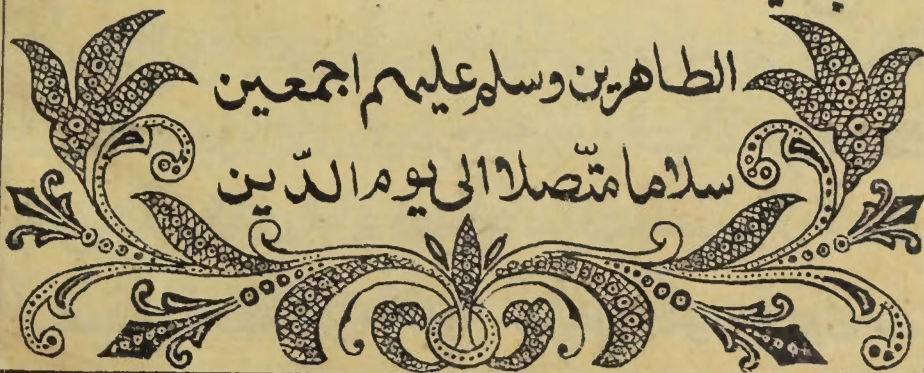 الطاهرين وسلم عليهم اجمعين
سلاما متّصلا الى يوم الدّين